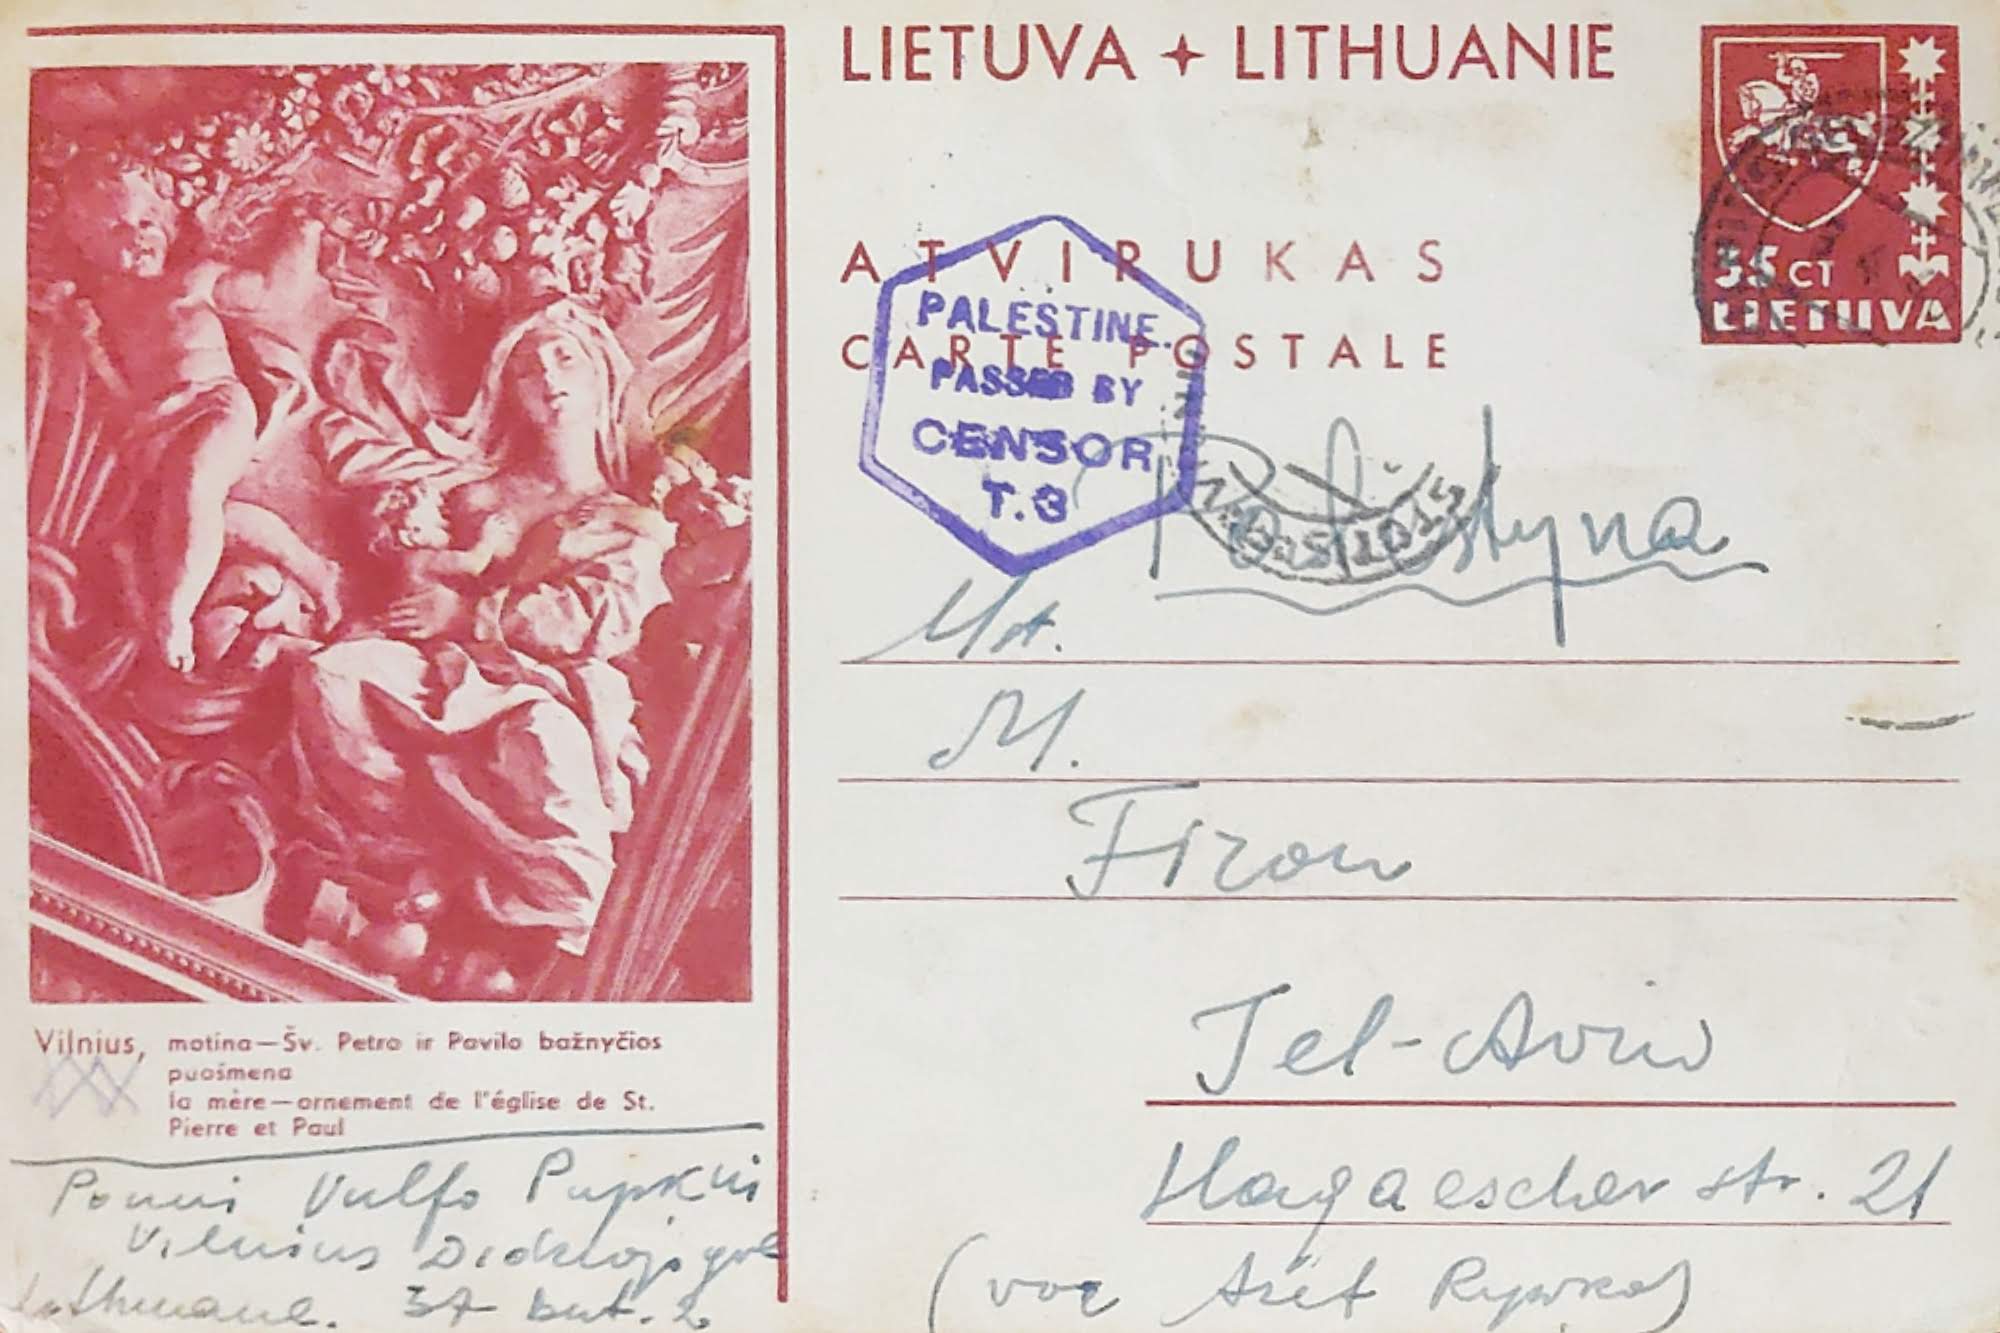 LIETUVA + LITHUANIE
35 CT
LIETUVA
ATVIRUKAS
CARTE POSTALE
PALESTINE.
PASSED BY
CENSOR
T.3
Palestyna
M.
Firon
Tel-Aviw
Hagaescher str. 21
Vilnius, motina—Šv. Petro ir Povilo bažnyčios
puošmena
la mère—ornement de l'église de St.
Pierre et Paul
Vulfo Pupkin
Vilnius Didžioji
37 but. 2